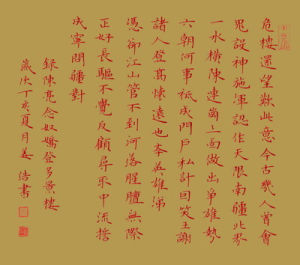 危樓還望歎此意今古幾人曾會
鬼設神施渾認作天限南疆北界
一水橫陳連崗三面做出爭雄勢
六朝何事祗成門戶私計因笑王謝
諸人登高懷遠也學英雄涕
憑卻江山管不到河洛腥膻無際
正好長驅不覺反顧尋取中流誓
成寧問疆對
錄陳亮念奴嬌登多景樓
歲次丁亥夏月姜浩書